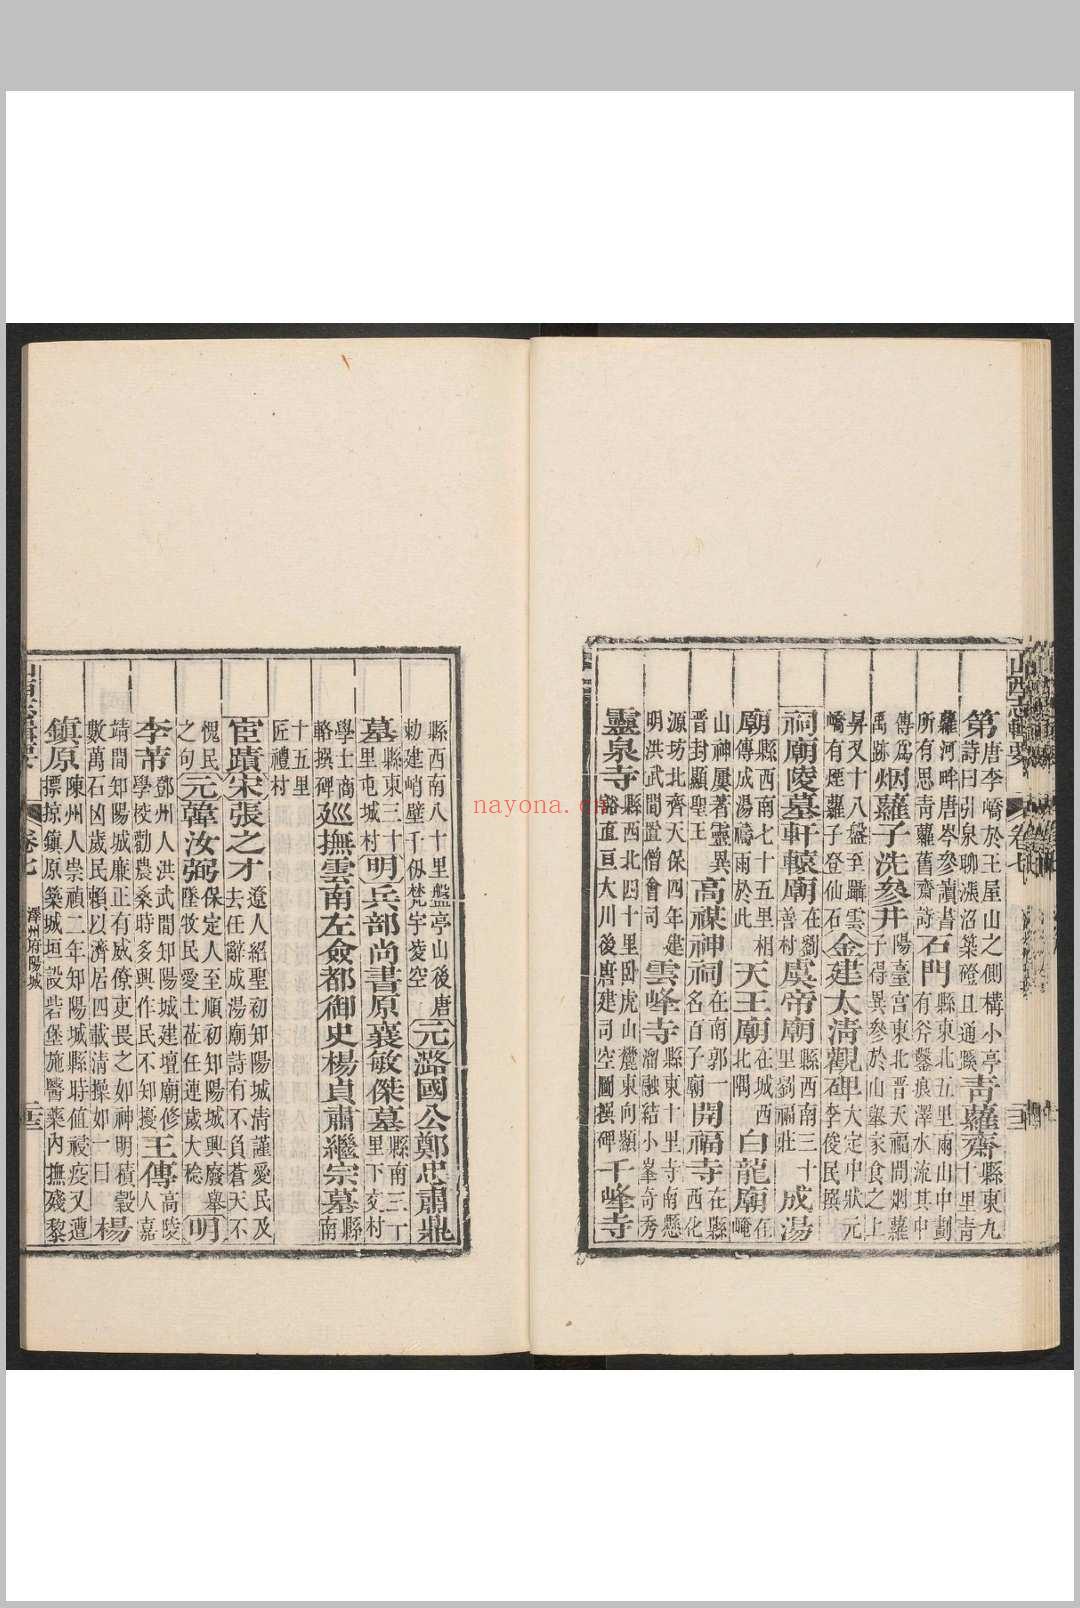 山西志輯要
卷七
第唐李嶠於王屋山之側構小亭
詩曰引泉聊漲沼築磴且通蹊青蘿齋縣東九
十里青
蘿河畔唐岑參讀書
所有思青蘿舊齋詩石門縣東北五里兩山中劃
有斧鑿痕澤水流其中
傳爲
禹跡烟蘿子洗參井陽臺宮東北晉天福間烟蘿
子得異參於山舉家食之上
昇又十八盤至躡雲
嶠有煙蘿子登仙石金建太清觀碑大定中狀元
李俊民撰
祠廟陵墓軒轅廟在劉
善村虞帝廟縣西南三十
里劉福莊成湯
廟縣西南七十五里相
傳成湯禱雨於此天王廟在城西
北隅白龍廟在
崦
山神屢著靈異
晉封顯聖王高禖神祠在南郭一
名百子廟開福寺在縣
西化
源坊北齊天保四年建
明洪武間置僧會司雲峰寺縣東十里寺南懸
溜融結小峯奇秀
靈泉寺縣西北四十里卧虎山麓東向顥
谿直亘大川後唐建司空圖撰碑千峰寺
縣西南八十里盤亭山後唐
勅建峭壁千仭梵宇凌空元潞國公鄭忠肅鼎
墓縣東三十
里屯城村明兵部尚書原襄敏傑墓縣南三丁
里下交村
學士商
輅撰碑巡撫雲南左僉都御史楊貞肅繼宗墓縣
南
十五里
匠禮村
宦蹟宋張之才遼人紹聖初知陽城清謹愛民及
去任辭成湯廟詩有不負蒼天不
愧民
之句元韓汝弼保定人至順初知陽城興廢舉
墜牧民愛士莅任連歲大稔明
李芾鄧州人洪武間知陽城建壇廟修
學校勸農桑時多興作民不知擾王傅高陵
人嘉
靖間知陽城廉正有威僚吏畏之如神明積穀
數萬石凶歲民賴以濟居四載清操如一日楊
鎮原陳州人崇禎二年知陽城縣時值祲疫又遭
摽掠鎮原築城垣設砦堡施醫藥內撫殘黎
山西志輯要
卷七
澤州府陽城
nayona.cn